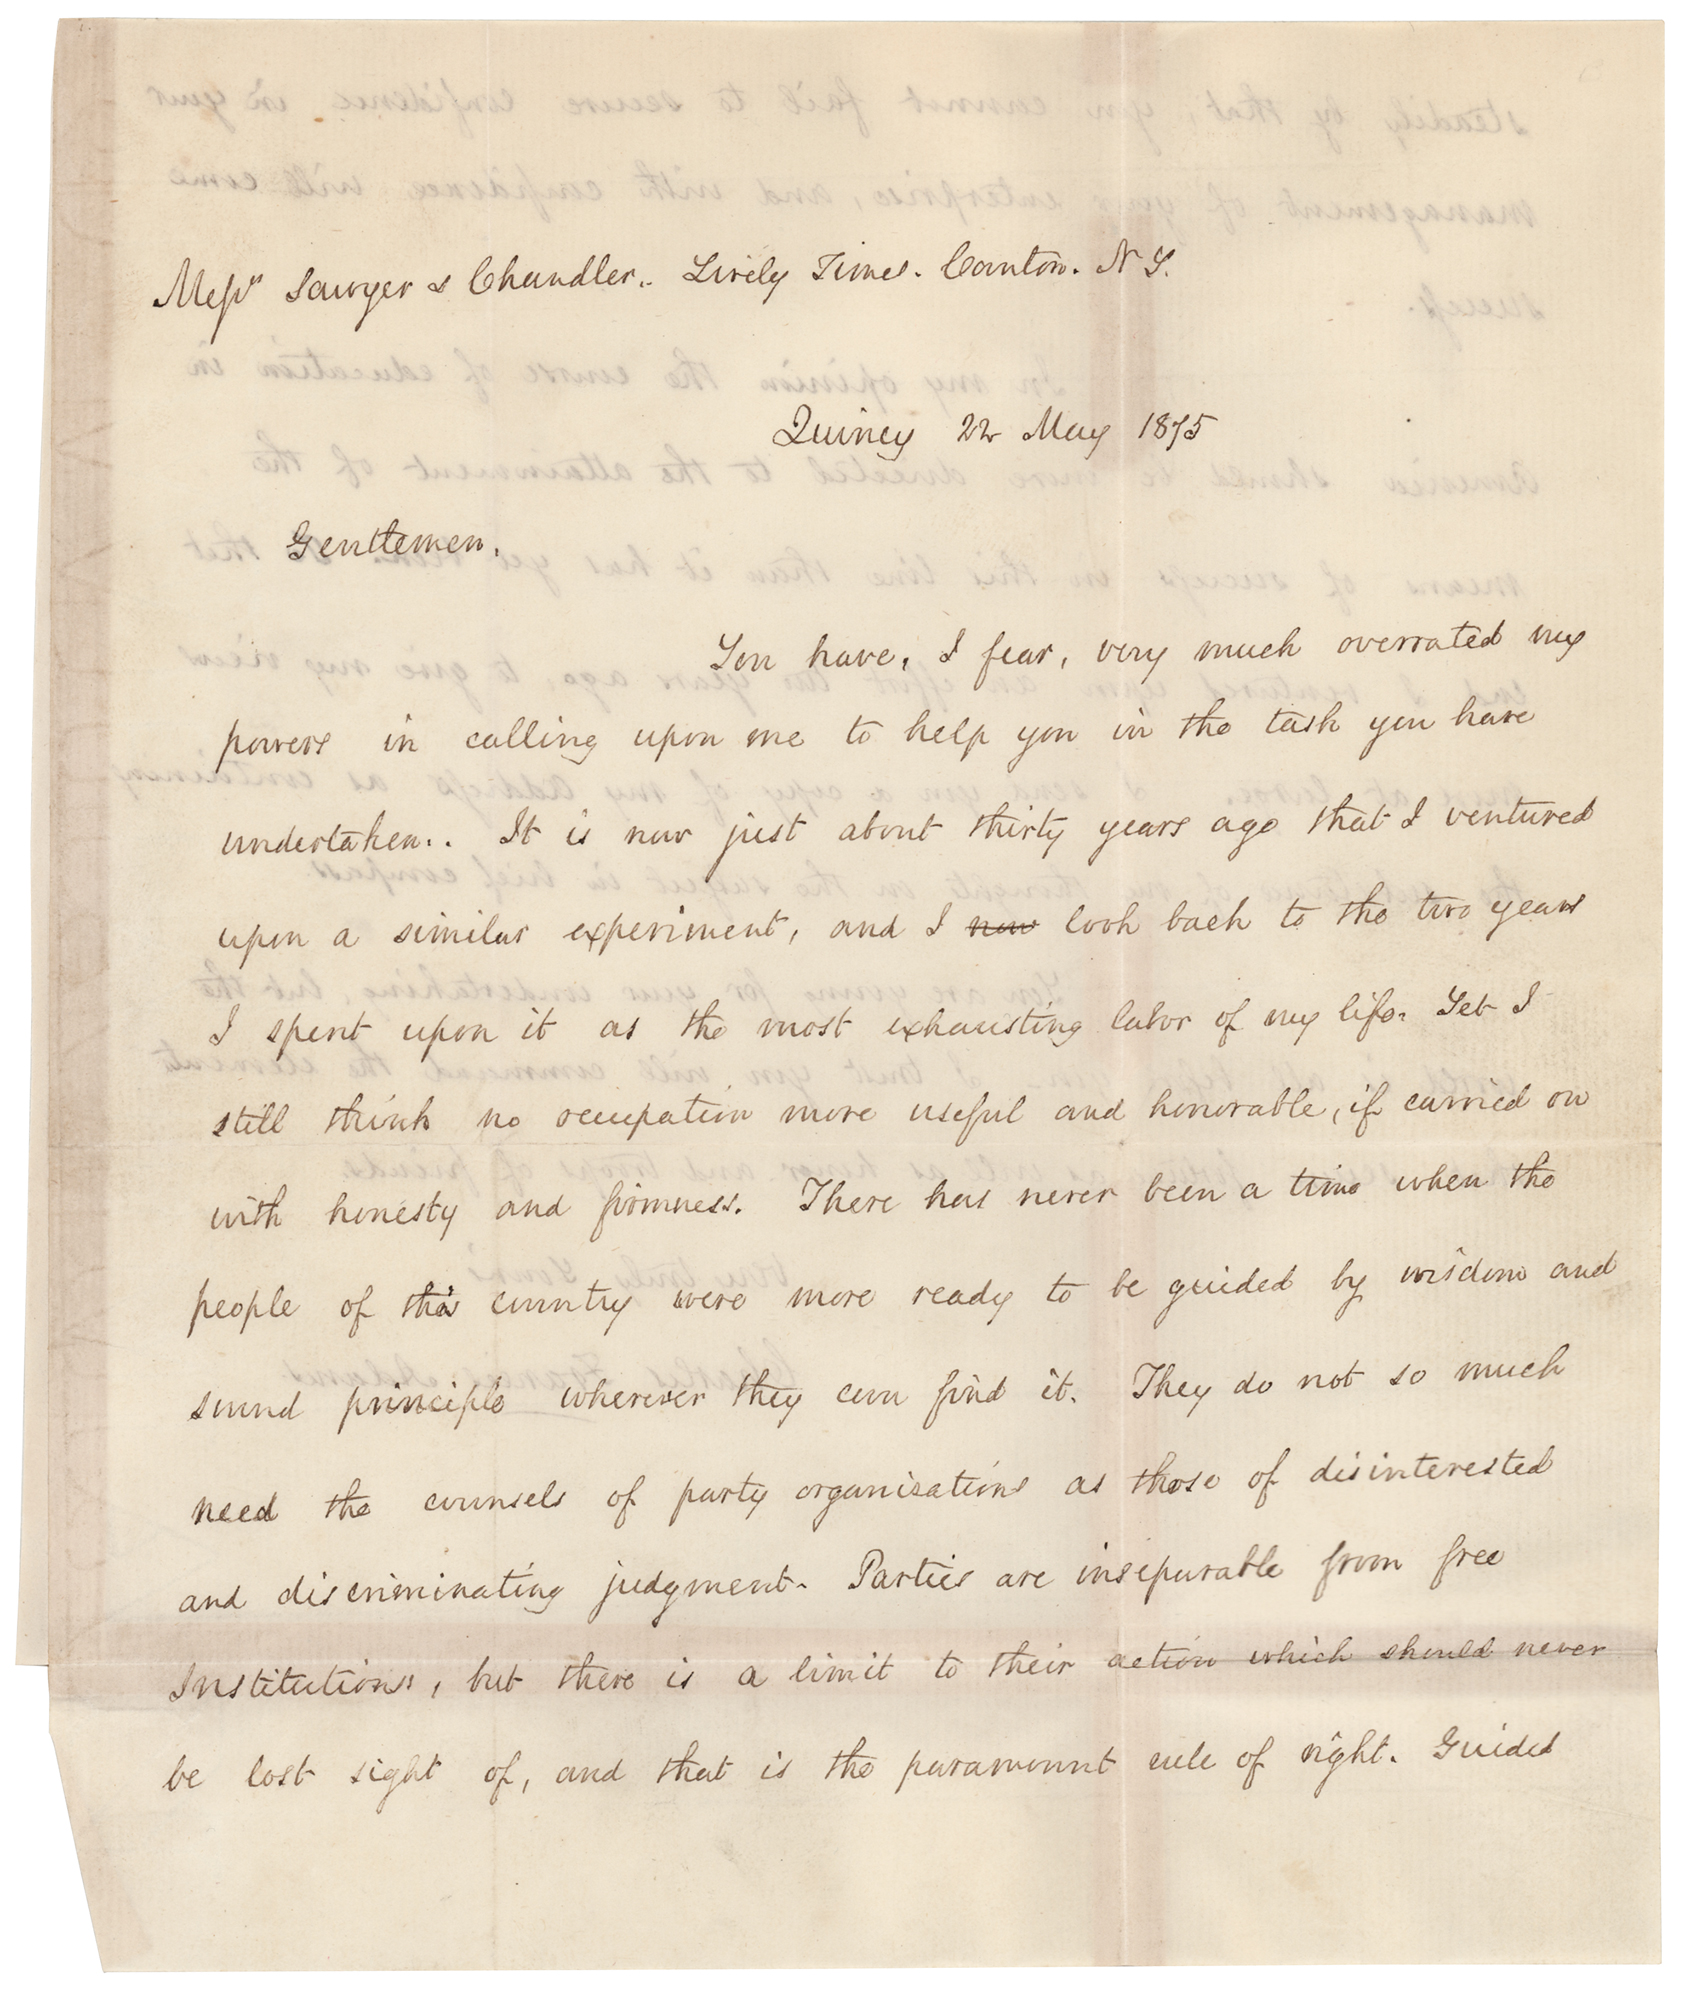 Messrs Sawyer & Chandler. Lively Times. Canton. N Y.
Quincy 22 May 1875
Gentlemen.
You have, I fear, very much overrated my
powers in calling upon me to help you in the task you have
undertaken. It is now just about thirty years ago that I ventured
upon a similar experiment, and I now look back to the two years
I spent upon it as the most exhausting labor of my life. Yet I
still think no occupation more useful and honorable, if carried on
with honesty and firmness. There has never been a time when the
people of this country were more ready to be guided by wisdom and
sound principle wherever they can find it. They do not so much
need the counsels of party organisations as those of disinterested
and discriminating judgment. Parties are inseparable from free
Institutions, but there is a limit to their action which should never
be lost sight of, and that is the paramount rule of right. Guided